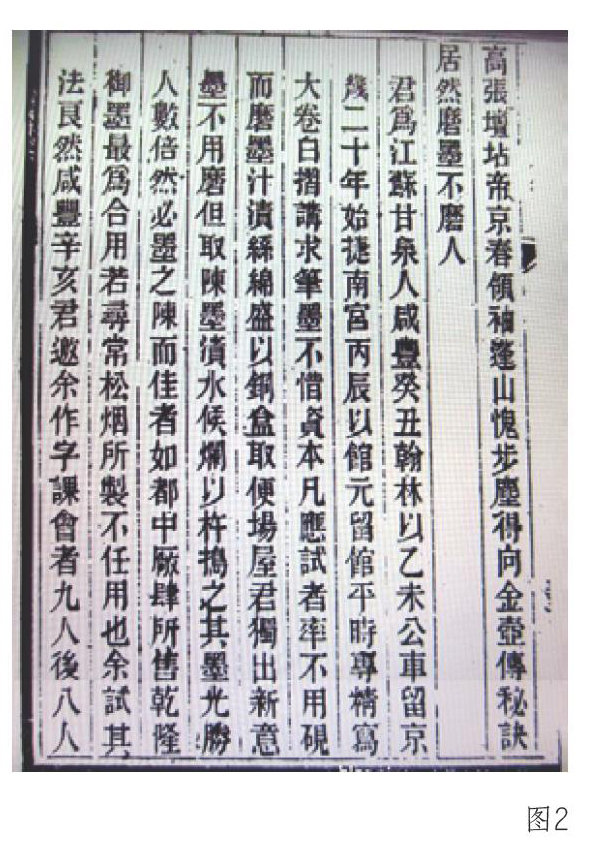 高張壇坫帝京春領袖蓬山愧步塵得向金壺傳秘訣
居然磨墨不磨人
君爲江蘇甘泉人咸豐癸丑翰林以乙未公車留京
幾二十年始捷南宮丙辰以館元留館平時專精寫
大卷白摺講求筆墨不惜資本凡應試者率不用硯
而磨墨汁漬絲綿盛以銅盒取便場屋君獨出新意
墨不用磨但取陳墨漬水候爛以杵搗之其墨光勝
人數倍然必墨之陳而佳者如都中厰肆所售乾隆
御墨最爲合用若尋常松烟所製不任用也余試其
法良然咸豐辛亥君邀余作字課會者九人後八人
图2